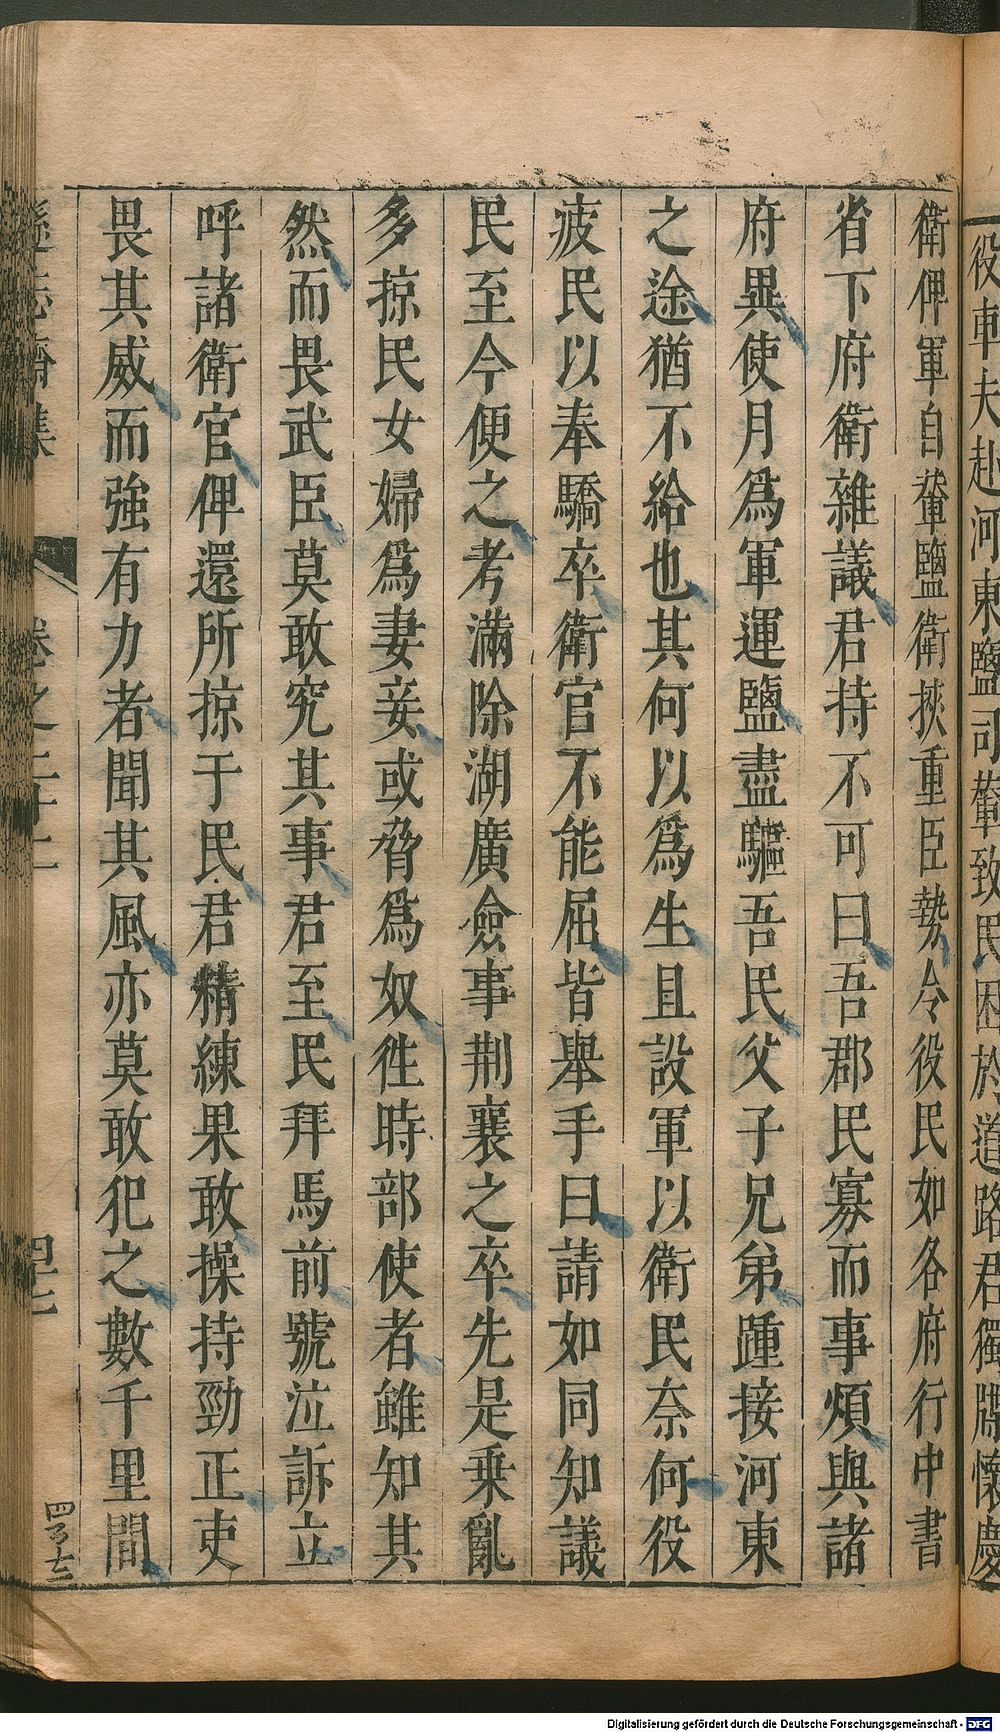 役車夫赴河東鹽司輦致民困於道路君獨牒懷慶
衛俾軍自輦鹽衛挾重臣勢令役民如各府行中書
省下府衛雜議君持不可曰吾郡民寡而事煩與諸
府異使月爲軍運鹽盡驅吾民父子兄弟踵接河東
之途猶不給也其何以爲生且設軍以衛民奈何役
疲民以奉驕卒衛官不能屈皆舉手曰請如同知議
民至今便之考滿除湖廣僉事荆襄之卒先是乗亂
多掠民女婦爲妻妾或脅爲奴徃時部使者雖知其
然而畏武臣莫敢究其事君至民拜馬前號泣訴立
呼諸衛官俾還所掠于民君精練果敢操持勁正吏
畏其威而強有力者聞其風亦莫敢犯之數千里間
遜志齋集
卷之二十二
四十七
Digitalisierung gefördert durch die Deutsche Forschungsgemeinschaft - DFG